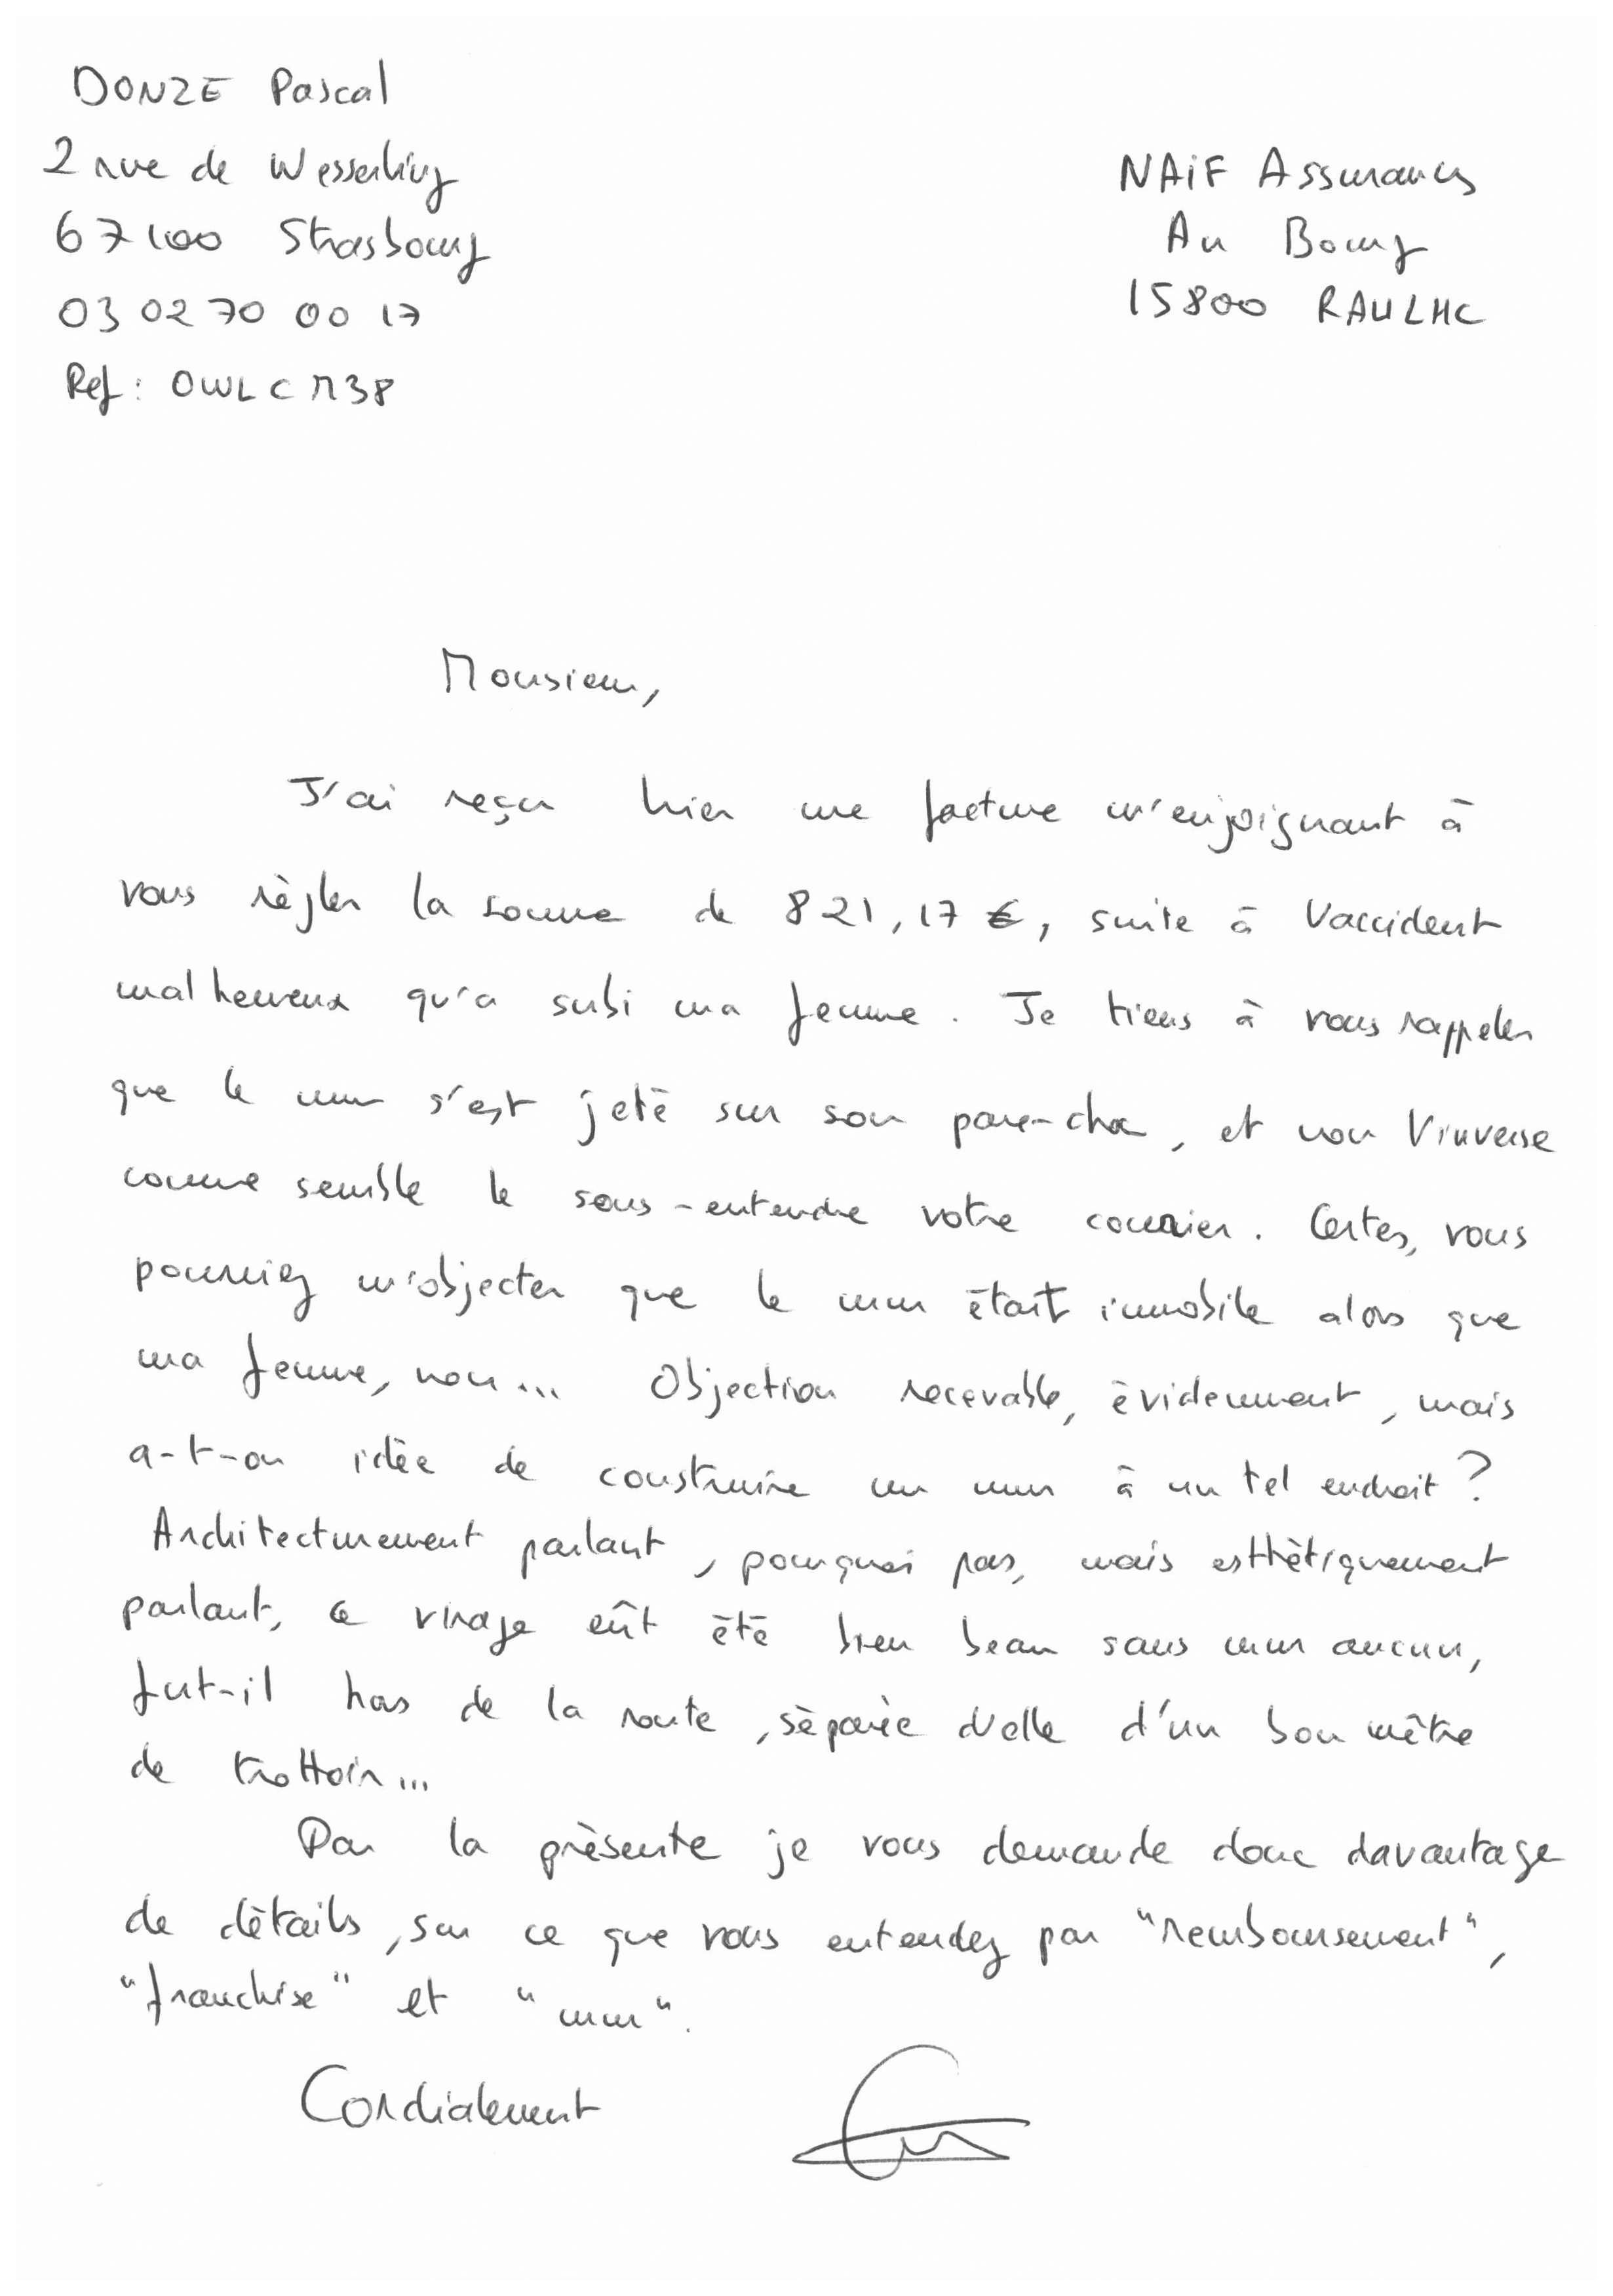 DONZE Pascal
2 rue de Wesserling
67100 Strasbourg
03 02 70 00 17
Ref : OWLCM38
NAiF Assurances
Au Bourg
15800 RAULHC
Monsieur,
J'ai reçu hier une facture m'enjoignant à
vous règler la somme de 821,17 €, suite à l'accident
malheureux qu'a subi ma femme. Je tiens à vous rappeler
que le mur s'est jeté sur son pare-choc, et non l'inverse
comme semble le sous-entendre votre courrier. Certes, vous
pourriez m'objecter que le mur était immobile alors que
ma femme, non... Objection recevable, évidemment, mais
a-t-on idée de construire un mur à un tel endroit ?
Architecturement parlant, pourquoi pas, mais esthétiquement
parlant, ce virage eût été bien beau sans mur aucun,
fut-il hors de la route, séparée d'elle d'un bon mètre
de trottoir...
Par la présente je vous demande donc davantage
de détails, sur ce que vous entendez par "remboursement",
"franchise" et "mur".
Cordialement